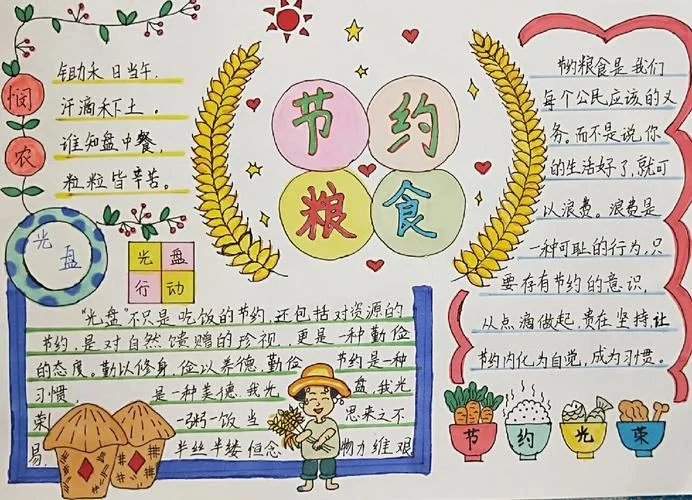 悯
农
锄禾日当午,
汗滴禾下土。
谁知盘中餐,
粒粒皆辛苦。
节约
粮食
节约粮食是我们
每个公民应该的义
务。而不是说你
的生活好了,就可
以浪费。浪费是
一种可耻的行为,只
要存有节约的意识,
从点滴做起,贵在坚持,让
节约内化为自觉,成为习惯。
光盘
光盘
行动
"光盘"不只是吃饭的节约,还包括对资源的
节约,是对自然馈赠的珍视,更是一种勤俭
的态度。勤以修身,俭以养德,勤俭 节约是一种
习惯, 是一种美德,我光 盘,我光
荣! 一粥一饭 当 思来之不
易, 半丝半缕 恒念 物力维艰
节 约 光 荣